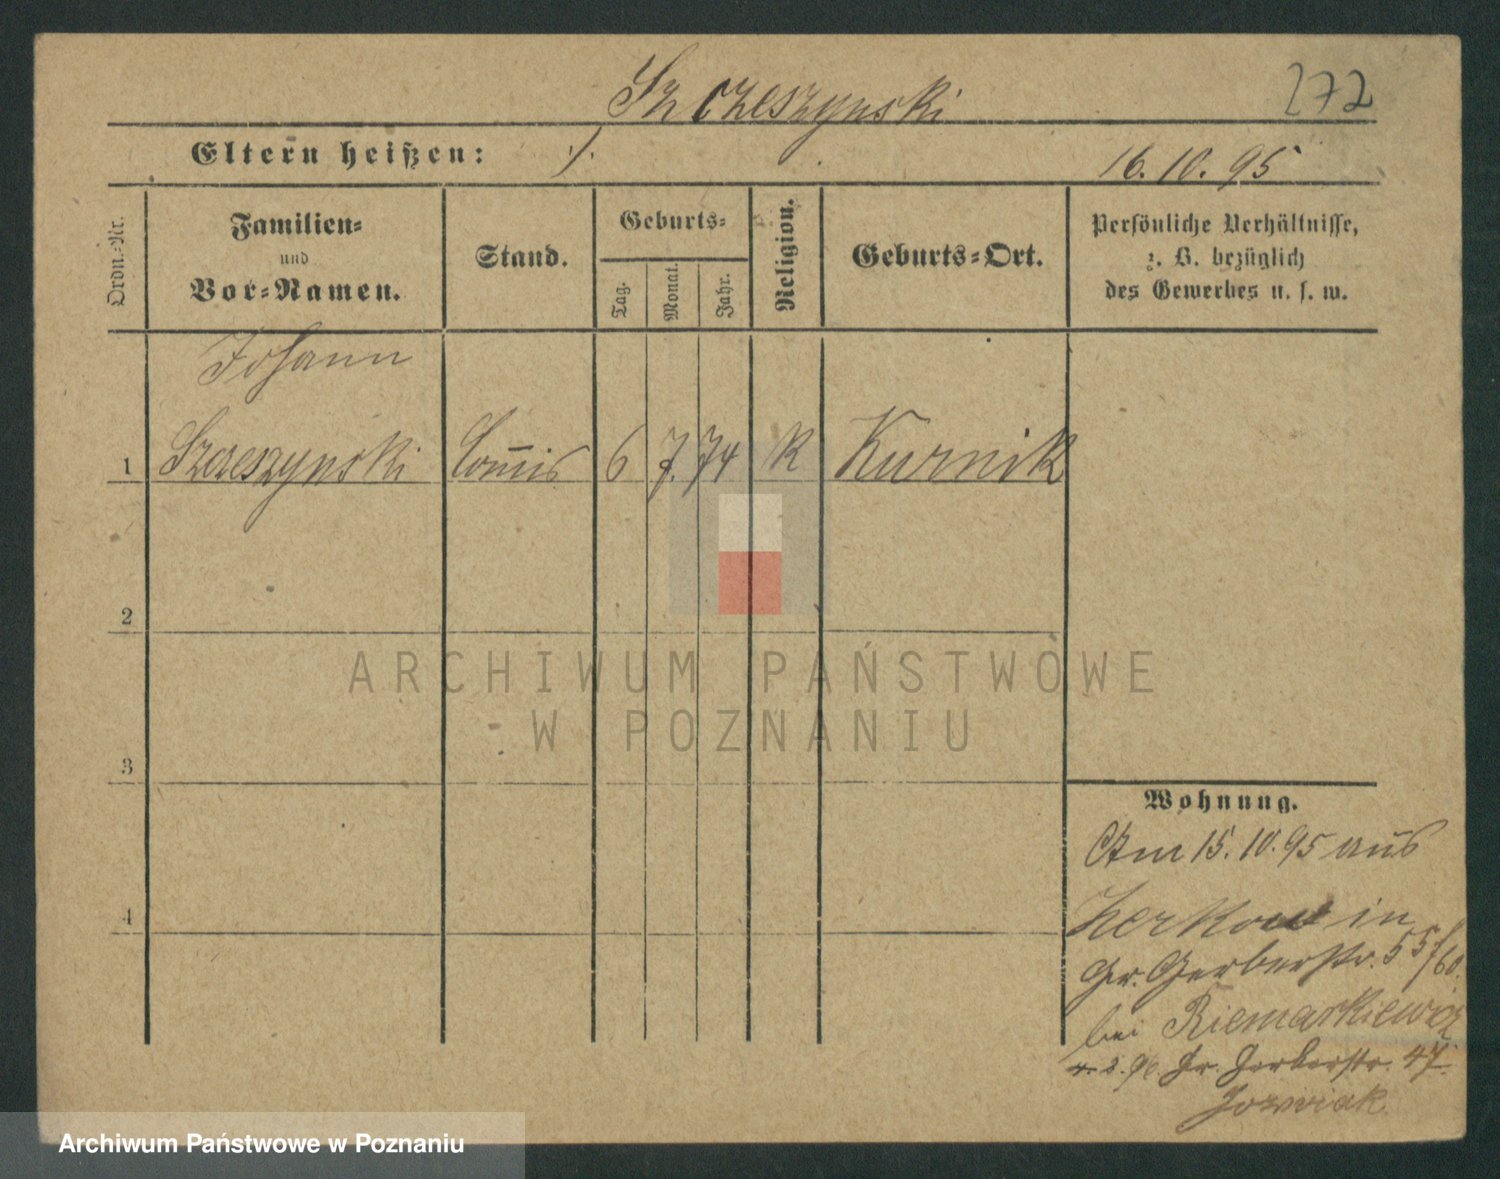 Szczeszynski
272
Eltern heißen: ./.
16.10.95
Ordn.-Nr.
Familien-
und
Vor-Namen.
Stand.
Geburts-
Tag.
Monat.
Jahr.
Religion.
Geburts-Ort.
Persönliche Verhältnisse,
z. B. bezüglich
des Gewerbes u. s. w.
Johann
1 Szczeszynski Com̄is 6 7. 74 K Kurnik
2
3
4
ARCHIWUM PAŃSTWOWE
W POZNANIU
Wohnung.
Am 15.10.95 aus
Zerkow in
Gr. Gerberstr. 55/60.
bei
2.96. Gr. Gerberstr. 47.
Jozwiak
Archiwum Państwowe w Poznaniu